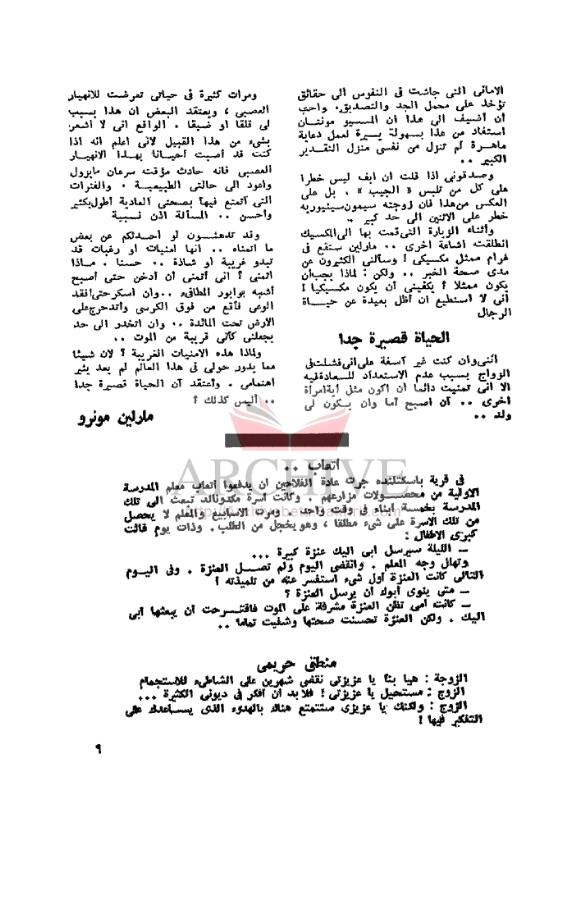 الامانى التى جاشت فى النفوس الى حقائق
تؤخذ على محمل الجد والتصديق. واحب
أن أضيف الى هذا ان المسيو مونتان
استفاد من هذا بسهولة يسيرة لعمل دعاية
ماهرة لم تنزل من نفسى منزل التقدير
الكبير ..
وصدقونى اذا قلت ان ايف ليس خطرا
على كل من تلبس « الجيب » . بل على
العكس من هذا فان زوجته سيمون سينيوريه
خطر على الاثنين الى حد كبير .
وأثناء الزيارة التى قمت بها الى المكسيك
انطلقت اشاعة اخرى .. مارلين ستقع فى
غرام ممثل مكسيكى ! وسألنى الكثيرون عن
مدى صحة الخبر .. ولكن : لماذا يجب أن
يكون ممثلا ؟ يكفينى أن يكون مكسيكيا !
أنى لا استطيع ان أظل بعيدة عن حياة
الرجال
الحياة قصيرة جدا
اننى وان كنت غير آسفة على انى فشلت فى
الزواج بسبب عدم الاستعداد للسعادة فيه
الا انى تمنيت دائما أن أكون مثل أية امرأة
اخرى .. أن أصبح أما وان يكون لى
ولد ..
ومرات كثيرة فى حياتى تعرضت للانهيار
العصبى ، ويعتقد البعض ان هذا يسبب
لى قلقا او ضيقا . الواقع انى لا أشعر
بشىء من هذا القبيل لانى اعلم انه اذا
كنت قد أصبت أحيانا بهذا الانهيار
العصبى فانه حادث مؤقت سرعان مايزول
واعود الى حالتى الطبيعية . والفترات
التى أتمتع فيها بصحتى العادية اطول بكثير
واحسن .. المسألة اذن نسبية
وقد تدهشون لو احدثكم عن بعض
ما اتمناه .. انها امنيات او رغبات قد
تبدو غريبة او شاذة .. حسنا . ماذا
أتمنى ؟ أنى أتمنى أن أدخن حتى أصبح
أشبه بوابور المطافىء .. وان اسكر حتى أفقد
الوعى فأقع من فوق الكرسى واتدحرج على
الارض تحت المائدة .. وان اتخدر الى حد
يجعلنى كأنى قريبة من الموت ..
ولماذا هذه الامنيات الغريبة ؟ لان شيئا
مما يدور حولى فى هذا العالم لم يعد يثير
اهتمامى . وأعتقد أن الحياة قصيرة جدا
.. أليس كذلك ؟
مارلين مونرو
أتعاب ..
ARCHIVE
فى قرية باسكتلنده جرت عادة الفلاحين ان يدفعوا أتعاب معلم المدرسة
الاولية من محصولات مزارعهم . وكانت اسرة مكدونالد تبعث الى تلك
المدرسة بخمسة أبناء فى وقت واحد . ومرت الاسابيع والمعلم لا يحصل
من تلك الاسرة على شىء مطلقا ، وهو يخجل من الطلب. وذات يوم قالت
كبرى الاطفال :
ـ الليلة سيرسل ابى اليك عنزة كبيرة ...
وتهلل وجه المعلم . وانقضى اليوم ولم تصل العنزة . وفى اليوم
التالى كانت العنزة أول شىء استفسر عنه من تلميذته !
ـ متى ينوى أبوك أن يرسل العنزة ؟
ـ كانت أمى تظن العنزة مشرفة على الموت فاقترحت أن يبعثها أبى
اليك . ولكن العنزة تحسنت صحتها وشفيت تماما ..
منطق حريمى
الزوجة : هيا بنا يا عزيزتى نقضى شهرين على الشاطىء للاستجمام
الزوج : مستحيل يا عزيزتى ! فلا بد أن افكر فى ديونى الكثيرة ...
الزوج : ولكنك يا عزيزى ستتمتع هناك بالهدوء الذى يساعدك على
التفكير فيها !
٩